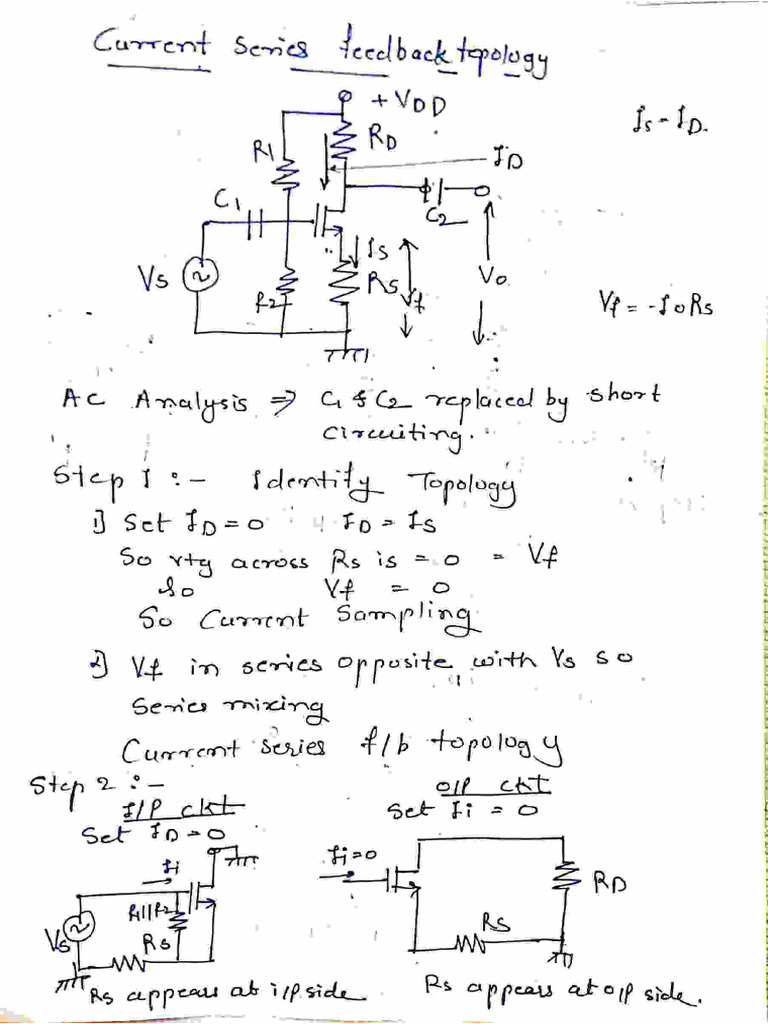 Current Series feedback topology
+ VDD
RD
R1
ID
Is = ID.
C1
C2
Is
Vs
R2
Rs
Vf
Vo
Vf = -IoRs
AC Analysis ⇒ C1 & C2 replaced by short
circuiting.
Step 1 :- Identify Topology
1] Set ID = 0 ID = IS
So vtg across Rs is = 0 = Vf
So Vf = 0
So Current Sampling
2] Vf in series opposite with Vs so
Series mixing
Current series f/b topology
Step 2 :-
I/P ckt
O/P ckt
Set ID = 0
Set Ii = 0
Ii
Ii=0
R1||R2
RD
Vs
Rs
Rs
Rs appears at i/p side
Rs appears at o/p side.